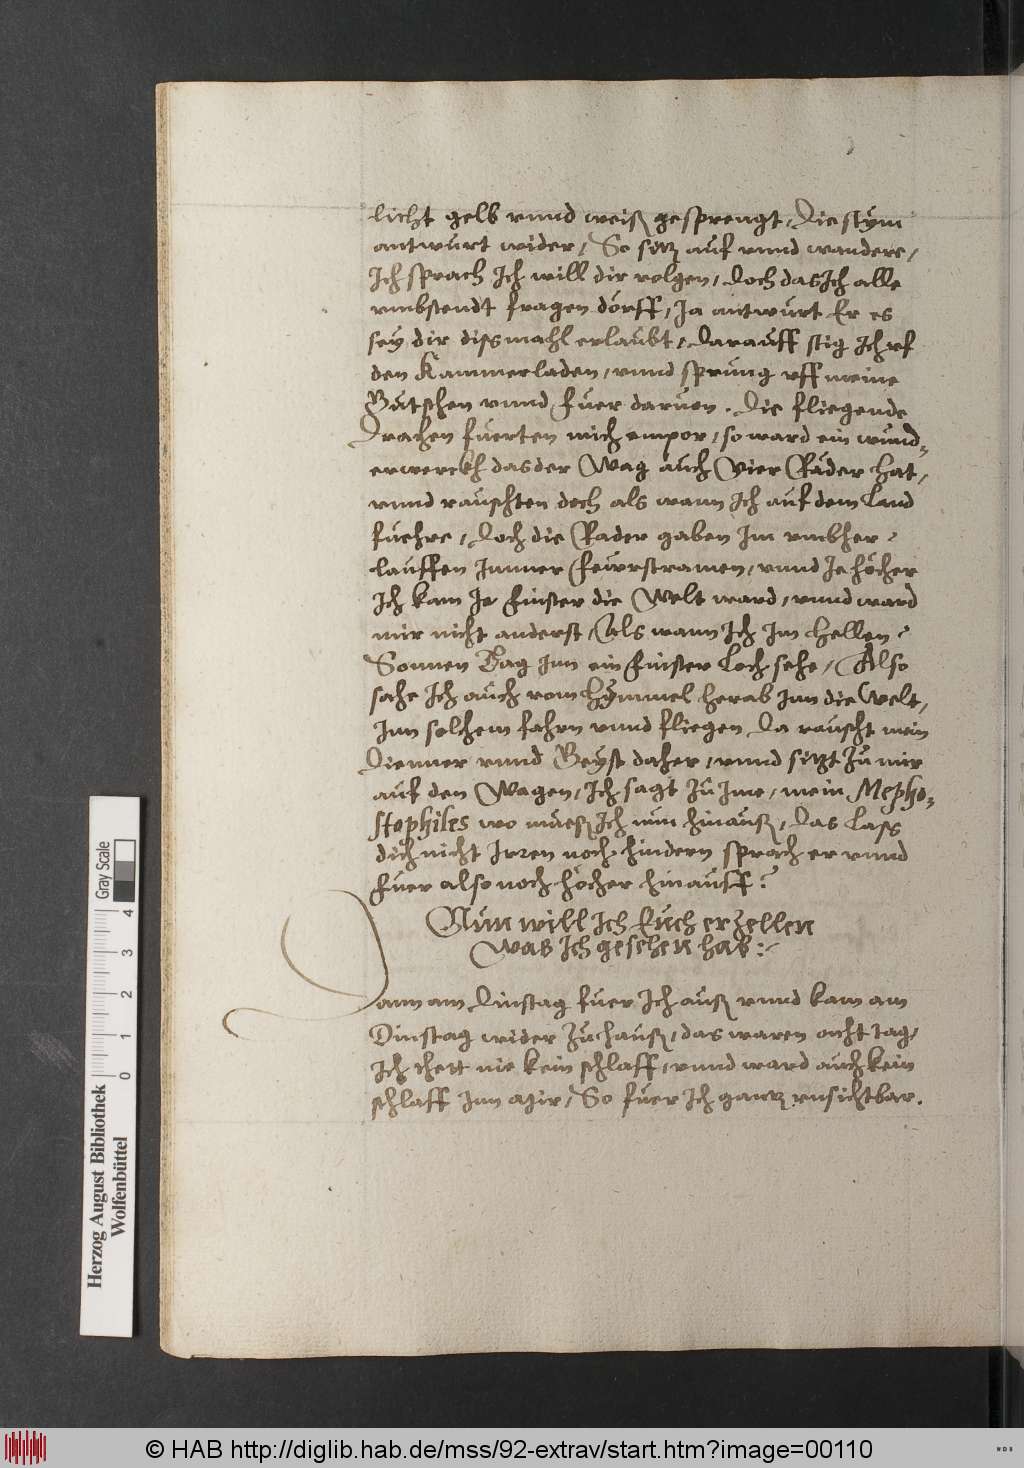 licht gelb vnnd weiß gesprengt, Die stÿm
antwurt wider, So sitz auf vnnd wandere,
Ich sprach Ich will dir volgen, doch das Ich alle
vmbstendt fragen dörff, Ja antwurt Er es
sey dir dissmahl erlaubt, Darauff stig Ich vf
den Kammerladen, vnnd sprung vff meine
Gutschen vnnd fuer daruon. Die fliegende
Drachen fuerten mich empor, so ward ein wund„
erwerckh das der Wag auch Vier Räder hat,
vnnd rauschten doch als wann Ich auf dem Land
fuehre, Doch die Räder gaben Im vmbher„
lauffen Immer fewrstramen, vnnd Je höcher
Ich kam Je finster die Welt ward, vnnd ward
mir nicht anderst, als wann Ich Im hellen„
Sonnen Tag Inn ein finster Loch sehe, Also
sahe Ich auch vom hÿmmel herab Inn die Welt,
Inn solchem fahrn vnnd fliegen Da rauscht mein
Dienner vnnd Geÿst daher, vnnd sitzt zu mir
auf den Wagen, Ich sagt zu Ime, mein Mepho„
stophiles wo mueß Ich nun hinauß, Das lass
dich nicht Irren noch hindern sprach er vnnd
fuer also noch höcher hinauff?
Nun will Ich Euch erzellen
was Ich gesehen hab:
Dann am Dinstag fuer Ich auß vnnd kam am
Dinstag wider Zuhauß, das waren acht tag,
Ich thett nie kein schlaff, vnnd ward auch kein
schlaff Inn mir, So fuer Ich gantz vnsichtbar.
Herzog August Bibliothek
Wolfenbüttel
0 1 2 3 4
Gray Scale
© HAB http://diglib.hab.de/mss/92-extrav/start.htm?image=00110
WDB